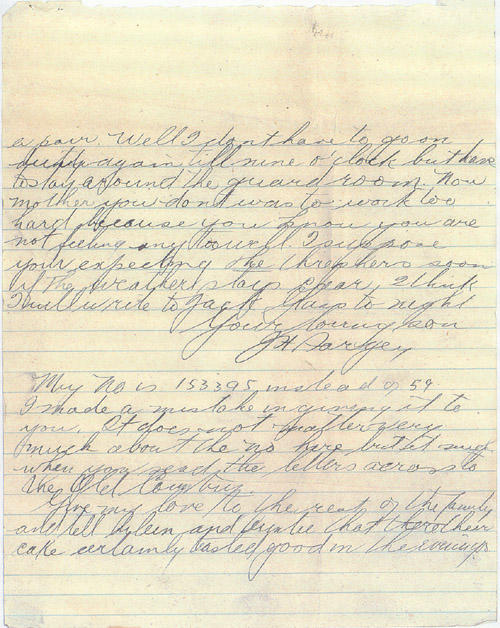 a pair. Well I dont have to go on
duty again till nine o'clock but have
to stay around the guard room. Now
mother you dont was to work too
hard because you know you are
not feeling any to well. I suppose
your expecting the threshers soon
if the weather stays clear, I think
I will write to Jack Hays to night
Your loving son
J H Dargey
My No is 153395 instead of 59
I made a mistake in giving it to
you. It does not matter very
much about the no here but it
when you send the letters across to
the Old Country.
Give my love to the rest of the family
and tell and that there
cake certainly tasted good in the evenings